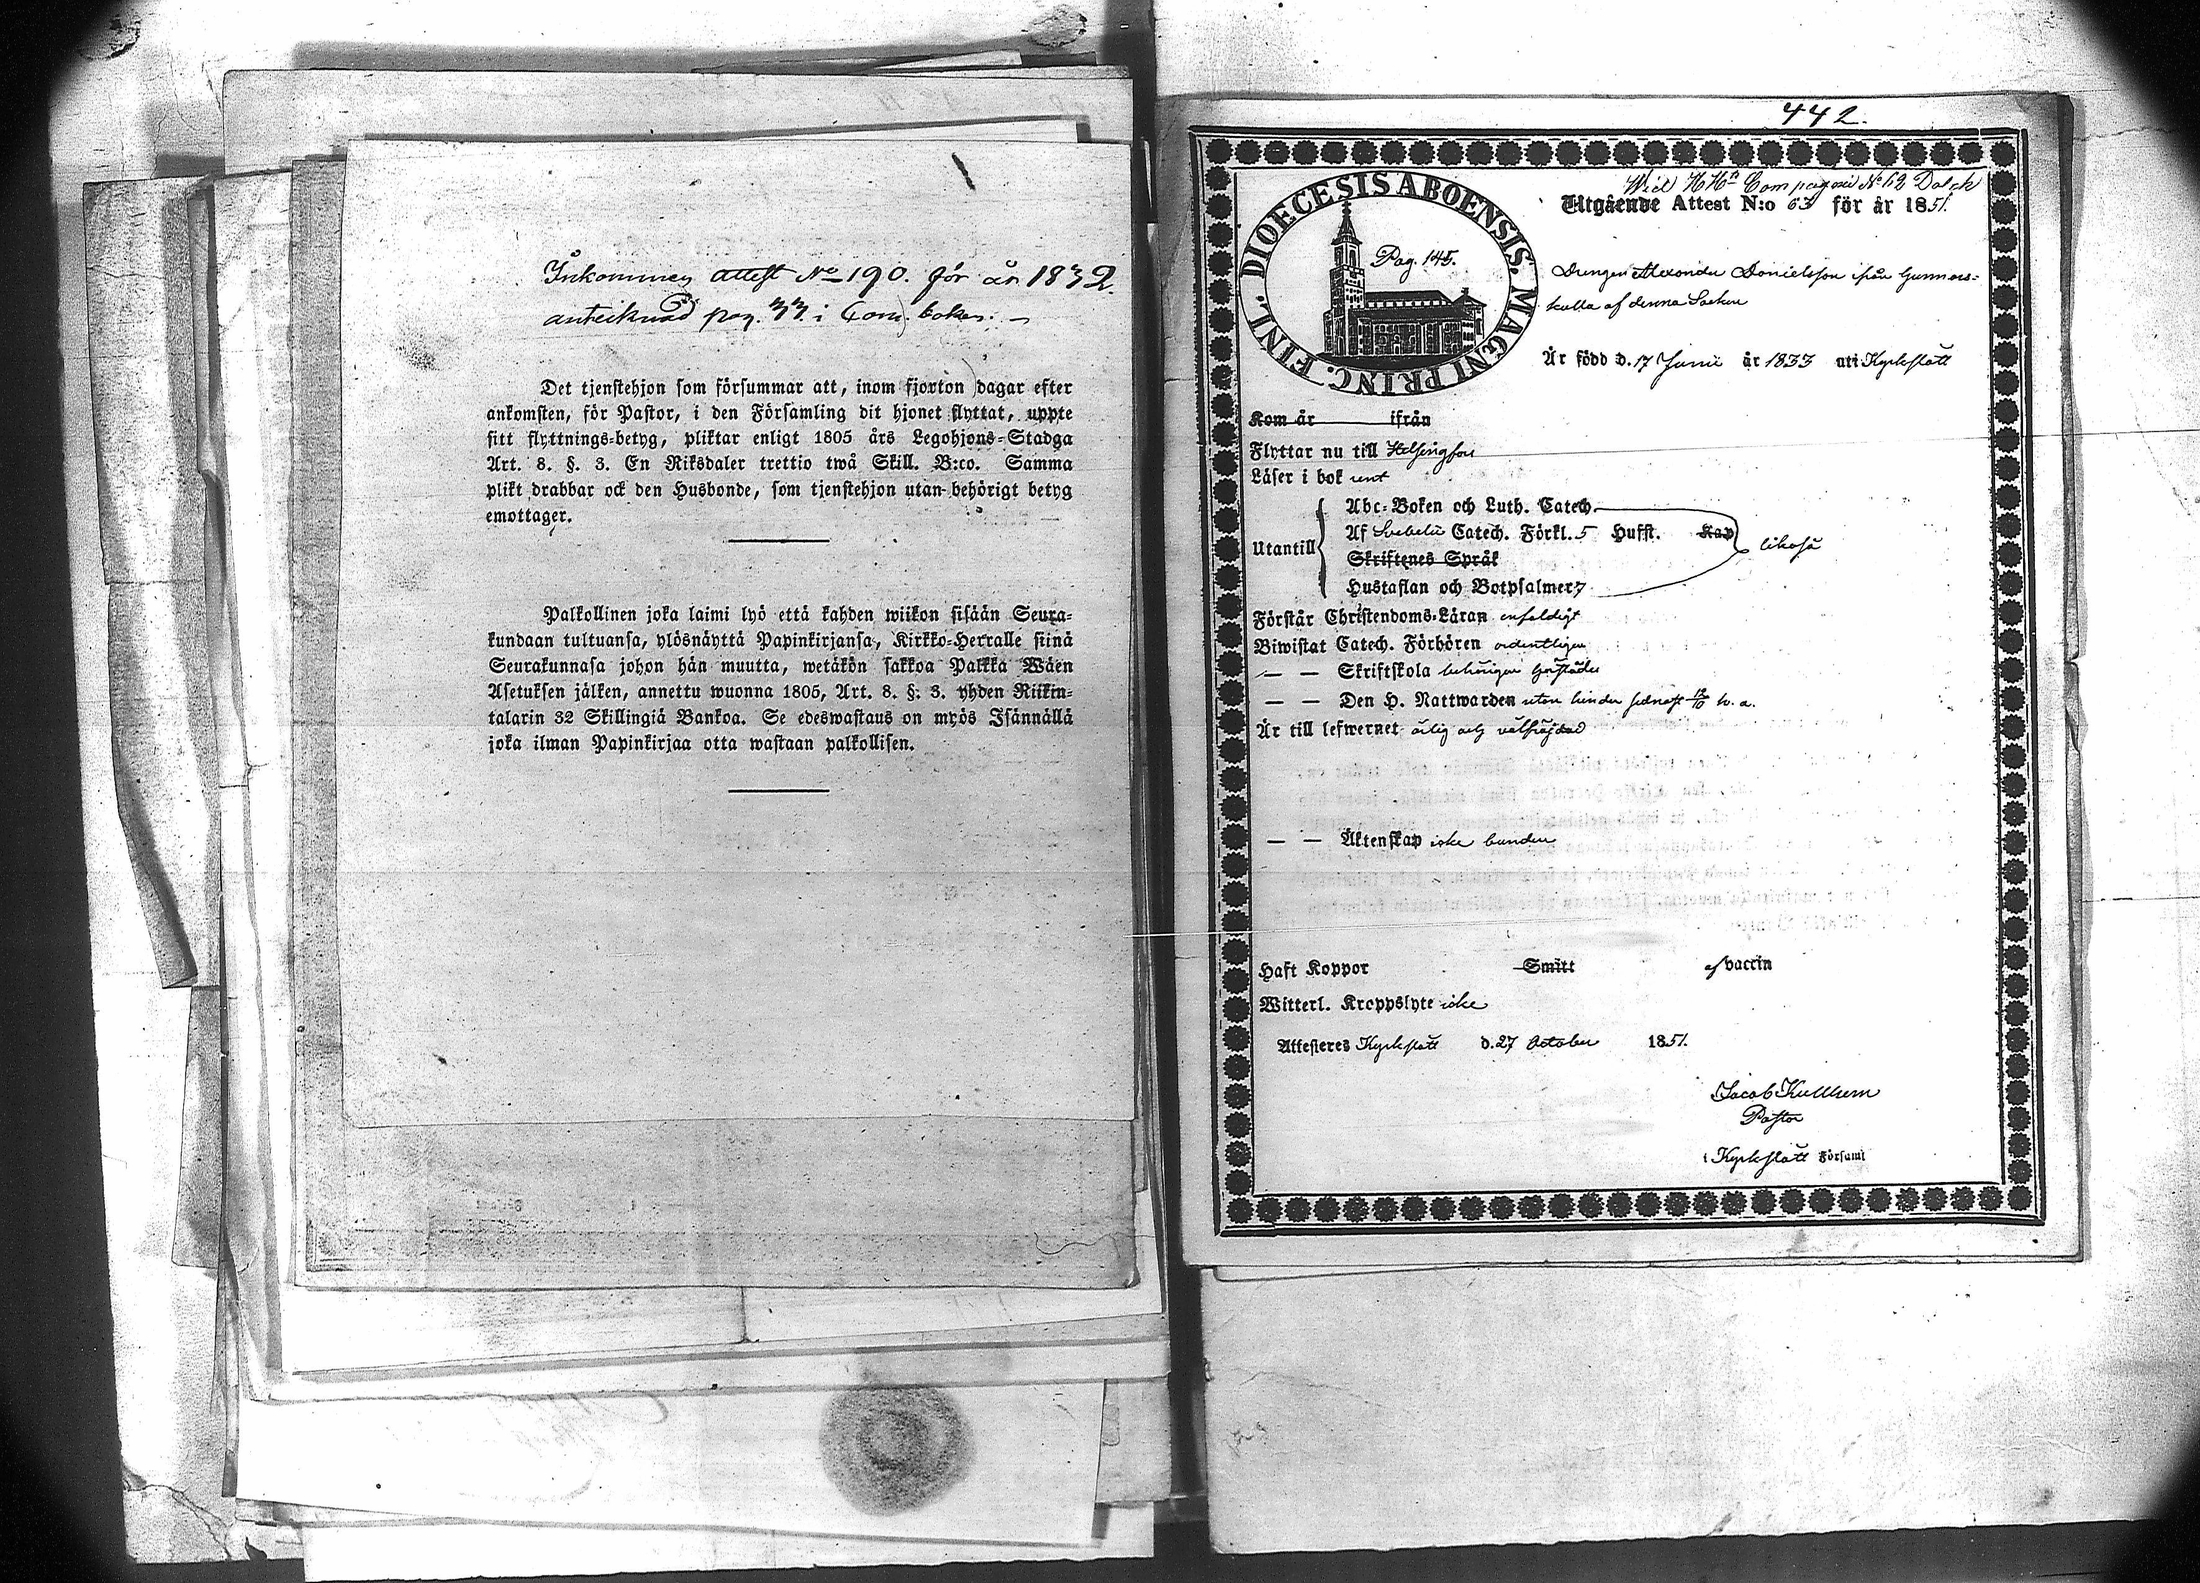 Inkommen attest No 190. för år 1832.
anteiknad pag. 33. i Com. boken. —
Det tjenstehjon som försummar att, inom fjorton dagar efter
ankomsten, för Pastor, i den Församling dit hjonet flyttat, uppte
sitt flyttnings-betyg, pliktar enligt 1805 års Legohjons-Stadga
Art. 8. §. 3. En Riksdaler trettio twå Skill. B:co. Samma
plikt drabbar ock den Husbonde, som tjenstehjon utan behörigt betyg
emottager.
Palkollinen joka laimi lyö että kahden wiikon sisään Seura-
kundaan tultuansa, ylösnäyttä Papinkirjansa, Kirkko-Herralle siinä
Seurakunnasa johon hän muutta, wetäkön sakkoa Palkka Wäen
Asetuksen jälken, annettu wuonna 1805, Art. 8. §. 3. yhden Riikin-
talarin 32 Skillingiä Bankoa. Se edeswastaus on myös Isännällä
joka ilman Papinkirjaa otta wastaan palkollisen.
442.
DIOECESIS ABOENSIS. MAGNI PRINC. FINL.
Pag. 145.
Wid Compagni No 62
Utgående Attest N:o 63 för år 1851.
Drengen Alexander Danielsson ifrån Gunnars-
kulla af denna Socken
Är född d. 17 Junii år 1833 uti Kyrkslätt
Kom år ifrån
Flyttar nu till Helsingfors
Läser i bok rent
Utantill
Abc-Boken och Luth. Catech.
Af Svebelii Catech. Förkl. 5 Hufst. Kap
likaså
Skriftenes Språk
Hustaflan och Botpsalmer 7
Förstår Christendoms-Läran enfaldigt
Biwistat Catech. Förhören ordentligen
— — Skriftskola behörigen
— — Den H. Nattwarden utan hinder sednast 12/10 h. a.
Är till lefwernet ärlig och välfrägdad
— — Äktenskap icke bunden
Haft Koppor Smitt af vaccin
Witterl. Kroppslyte icke
Attesteres Kyrkslätt d. 27 October 1851.
Jacob Kullhem
Pastor
i Kyrkslätt Församl